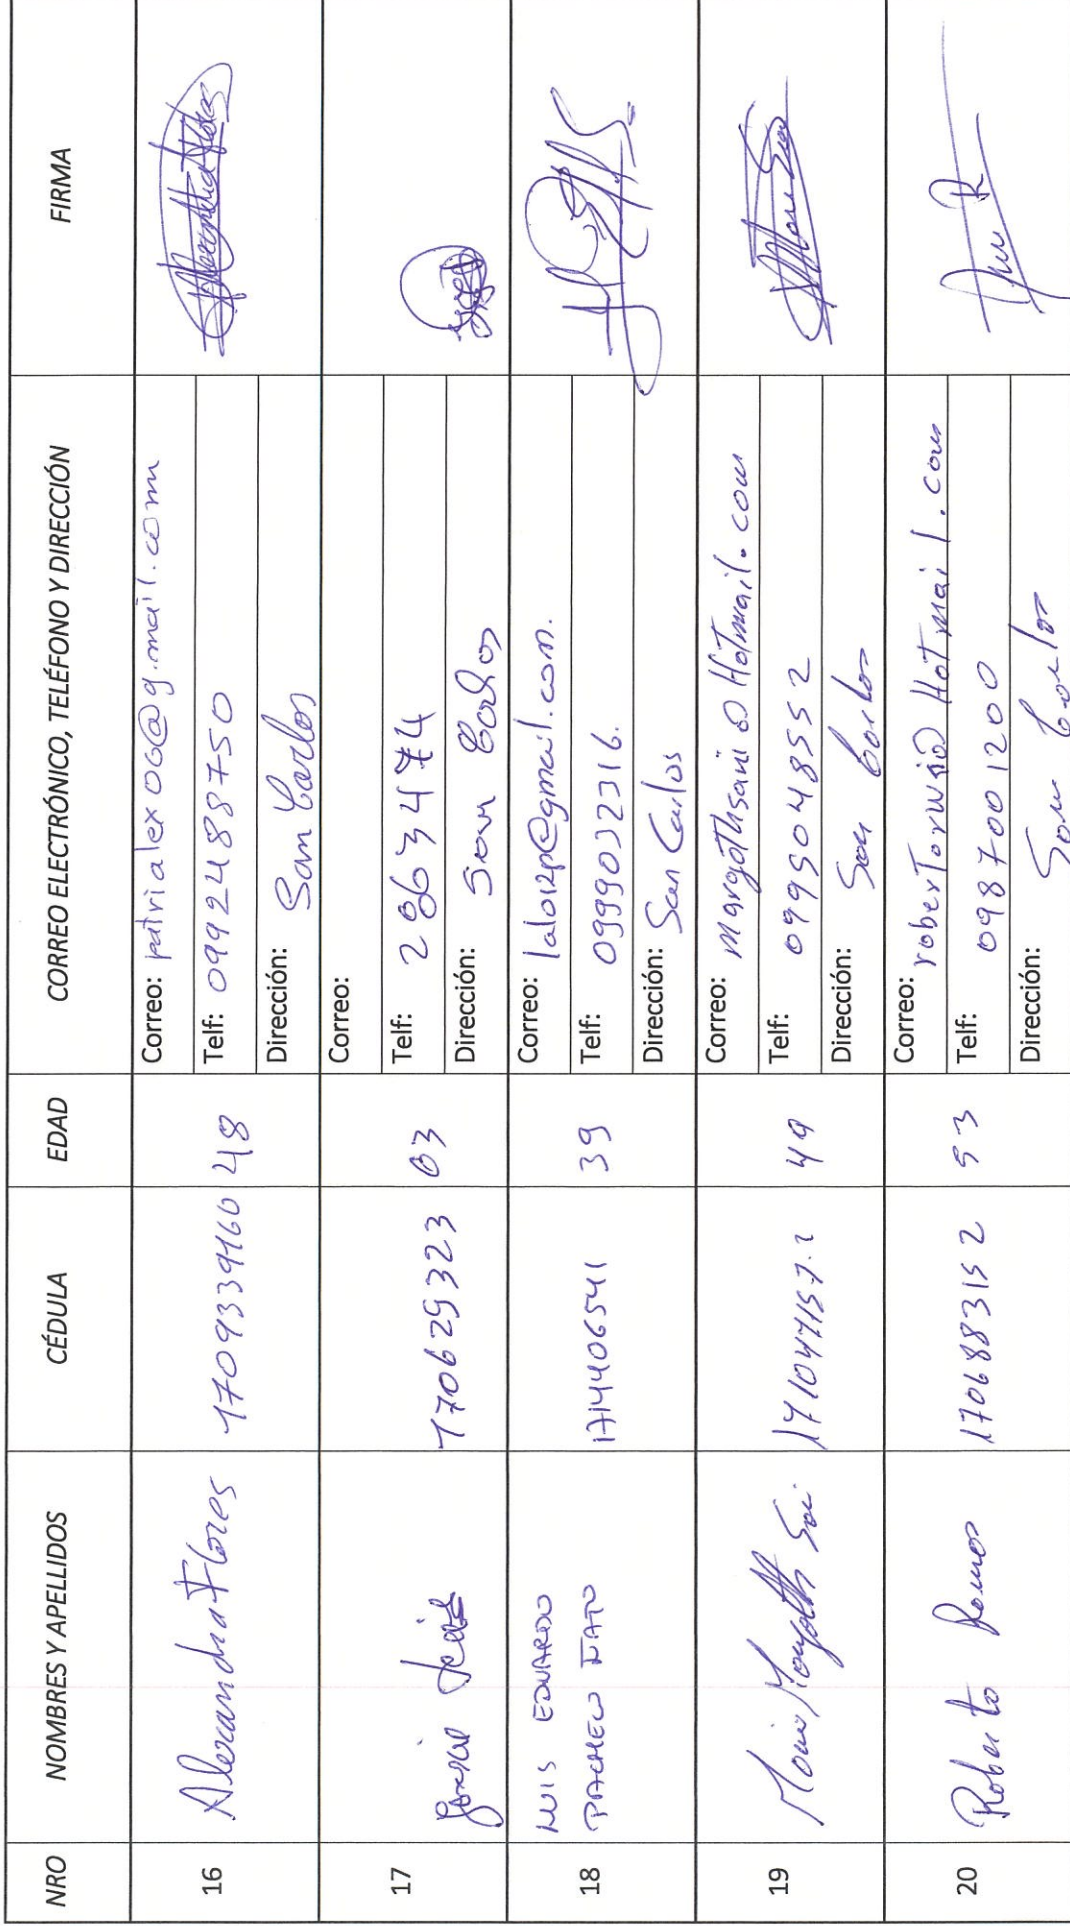 NRO NOMBRES Y APELLIDOS CÉDULA EDAD CORREO ELECTRÓNICO, TELÉFONO Y DIRECCIÓN FIRMA
16 Alexandra Flores 1709339160 48
Correo: patrialex06@g.mail.com
Telf: 0992488750
Dirección: San Carlos
17 1706295323 63
Correo:
Telf: 2863474
Dirección: San Carlos
18 LUIS EDUARDO
PACHECO 1714406541 39
Correo: lalo12p@gmail.com.
Telf: 0999032316.
Dirección: San Carlos
19 Margoth 49
Correo: margothsani@Hotmail.com
Telf: 0995048552
Dirección: San Carlos
20 Roberto Ramos 1706883152 53
Correo: Hotmail.com
Telf: 0987001200
Dirección: San Carlos